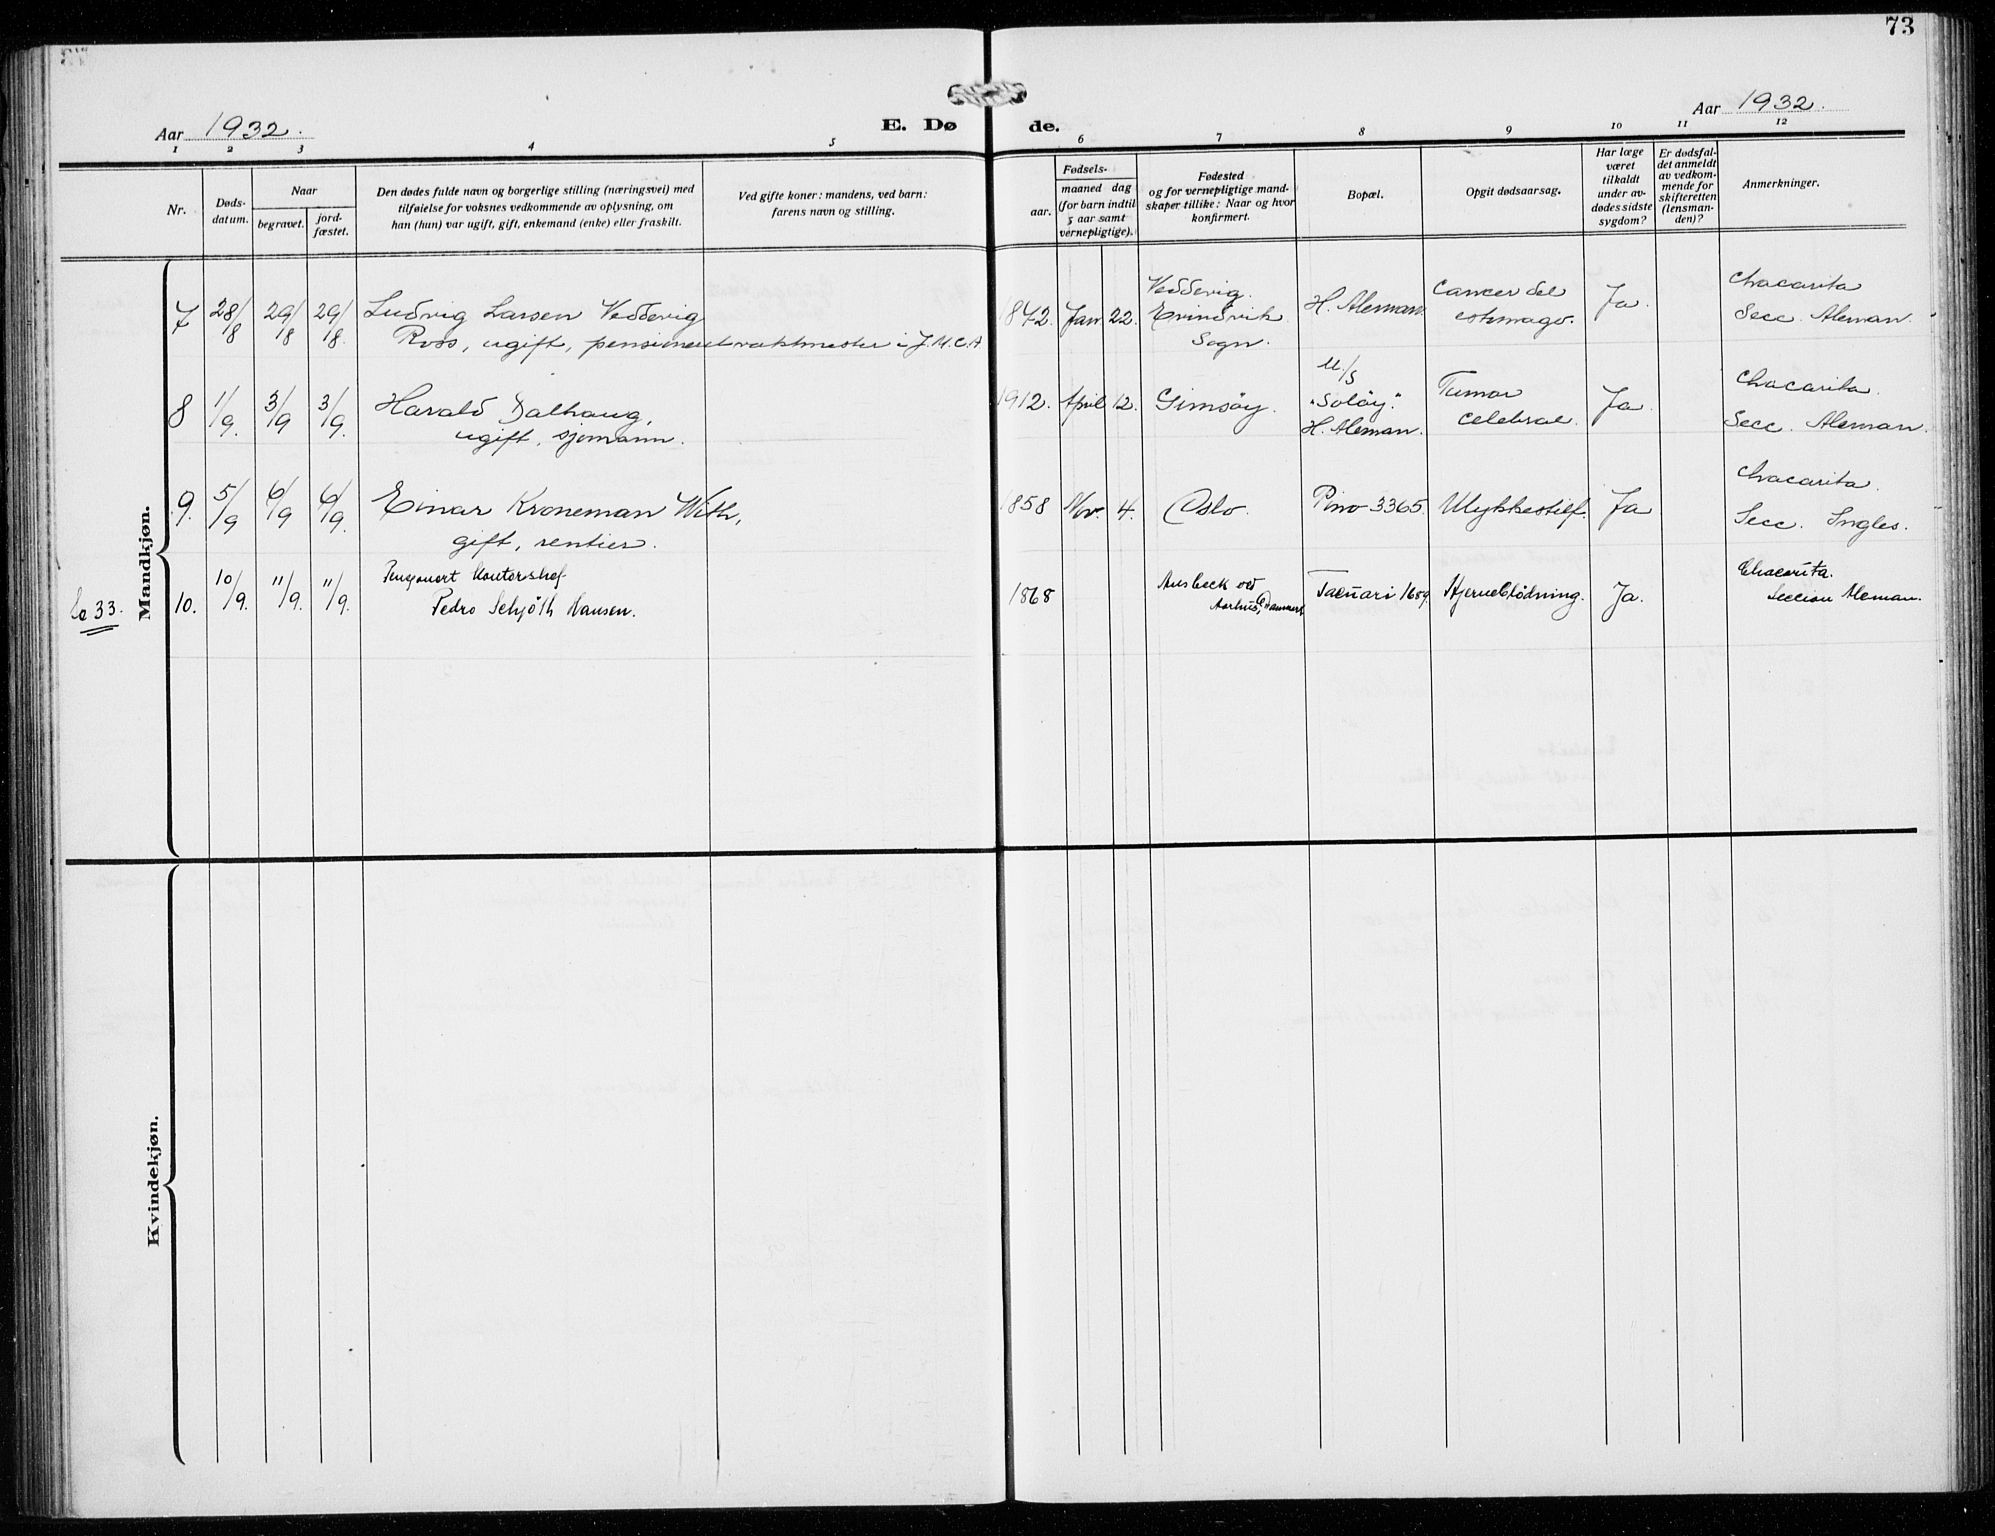 73
Aar 1932.
E. Dø de.
Aar 1932.
1 2 3 4 5 6 7 8 9 10 11 12
Nr.
Døds-
datum.
Naar
begravet.
jord-
fæstet.
Den dødes fulde navn og borgerlige stilling (næringsvei) med
tilføielse for voksnes vedkommende av oplysning, om
han (hun) var ugift, gift, enkemand (enke) eller fraskilt.
Ved gifte koner: mandens, ved barn:
farens navn og stilling.
Fødsels-
aar.
maaned dag
(for barn indtil
5 aar samt
vernepligtige).
Fødested
og for vernepligtige mand-
skaper tillike: Naar og hvor
konfirmert.
Bopæl.
Opgit dødsaarsag.
Har læge
været
tilkaldt
under av-
dødes sidste
sygdom?
Er dødsfal-
det anmeldt
av vedkom-
mende for
skifteretten
(lensman-
den)?
Anmerkninger.
Mandkjøn.
7 28/8 29/8 29/8. Ludvig Larsen Vedvig
Ross, ugift, pensioneret vaktmester i J.M.C.A.
1872. Jan 22.
Evindvik
Sogn.
H. Aleman.
Cancer del
estomago.
Ja.
Chacarita
Secc. Aleman.
8 1/9. 3/9 3/9. Harald Dalhaug,
ugift, sjømann.
1912. April 12. Gimsøy.
M/S
"Soløy".
H. Aleman.
Tumor
celebrae.
Ja.
Chacarita.
Secc. Aleman.
9. 5/9 6/9 6/9. Einar Kroneman With,
gift, rentier.
1858 Nov. 4. Oslo. Pino 3365. Ulykkestilf. Ja
Chacarita.
Secc. Ingles.
33.
10. 10/9. 11/9. 11/9.
Pensionert Kontorchef
Pedro Schjöth Hansen.
1868
ved
Aarhus, Danmark
Tacuari 1689. Hjerneblödning. Ja.
Chacarita.
Seccion Aleman.
Kvindekjøn.